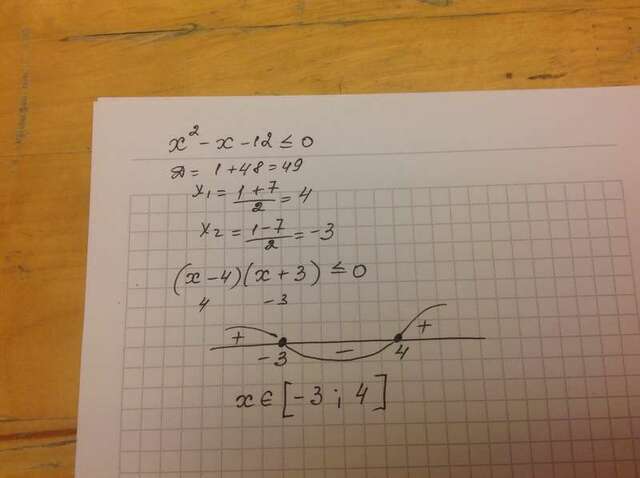 x² - x - 12 ≤ 0
D = 1 + 48 = 49
x₁ = (1 + 7)/2 = 4
x₂ = (1 - 7)/2 = -3
(x - 4)(x + 3) ≤ 0
4 -3
+ - +
-3 4
x ∈ [-3 ; 4]